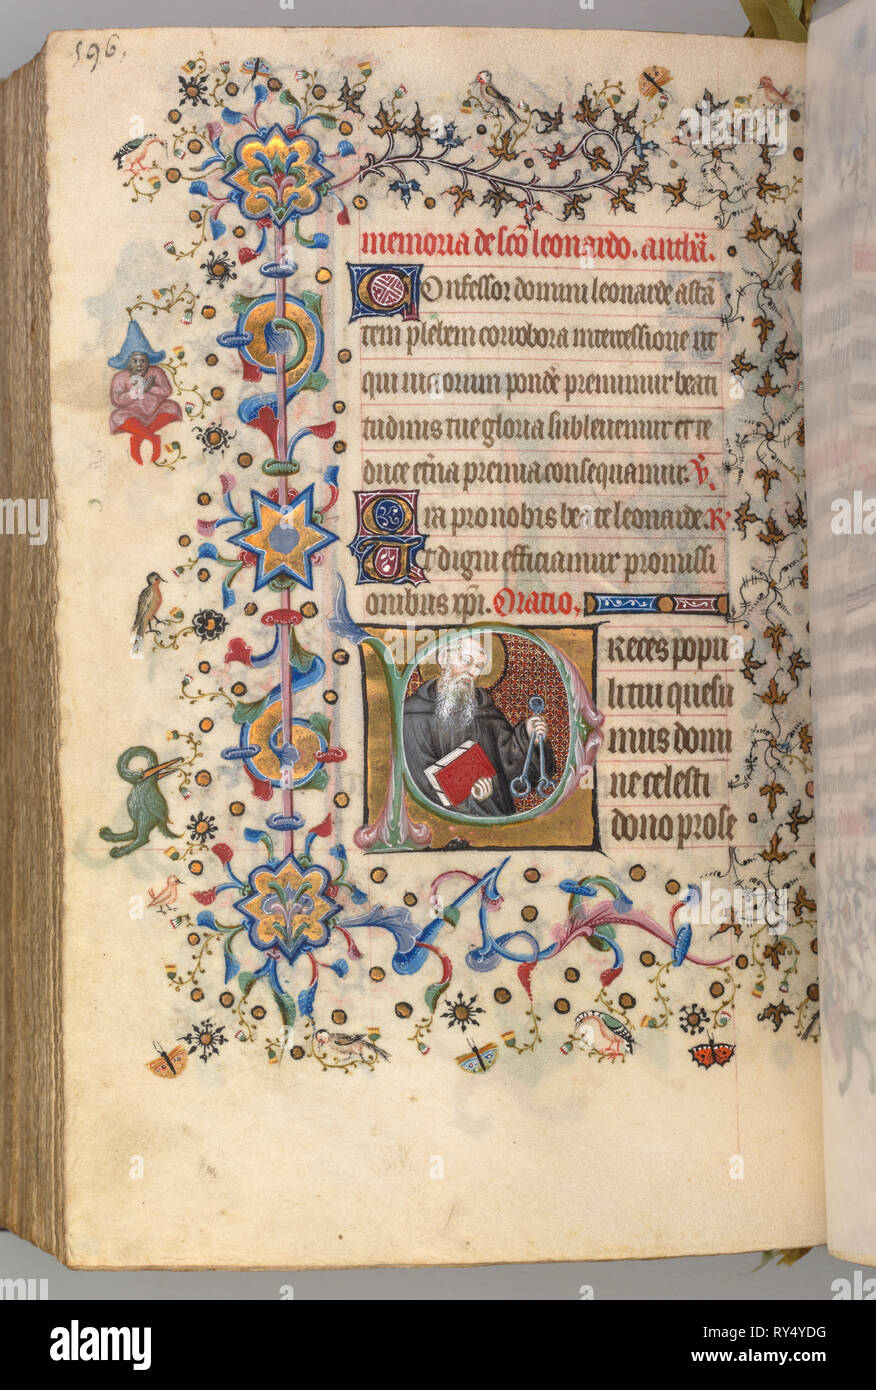 596.
memoria de sco leonardo. anth̄a.
Confessor domini leonarde astā
tem plebem corrobora intercessione ut
qui viciorum ponde premimur beati
tudinis tue gloria subleuemur et te
duce etn̄a premia consequamur. V̄.
Ora pro nobis beate leonarde. R
Ut digni efficiamur promissi
onibus xp̄i. Oratio,
Preces popu
li tui quesu
mus domi
ne celesti
dono prose
alamy
Image ID: RY4YDG
www.alamy.com